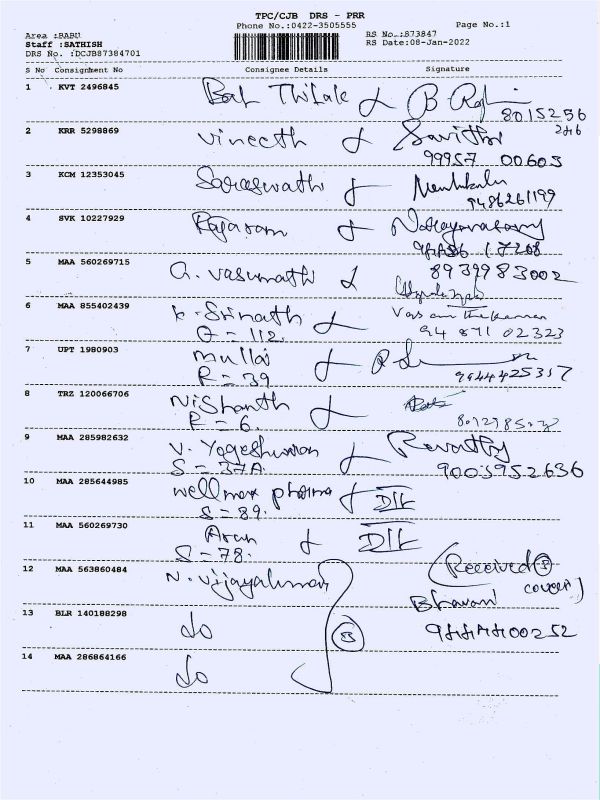 TPC/CJB DRS - PRR
Phone No.:0422-3505555 Page No.:1
Area :BABU RS No.:873847
Staff :SATHISH RS Date:08-Jan-2022
DRS No. :DCJB87384701
S No Consignment No Consignee Details Signature
1 KVT 2496845 Bal Thilak
8015256
246
2 KRR 5298869 Vineeth Savithri
99957 00603
3 KCM 12353045 Saraswathi
9486261199
4 SVK 10227929 Rajaram Narayanasamy
5 MAA 560269715 G. Vasumathi 8939983002
6 MAA 855402439 K. Srinath
Q = 112. 94 871 02323
7 UPT 1980903 Mullai
R = 39 9444425317
8 TRZ 120066706 Nishanth
R = 6.
9 MAA 285982632 V. Yogeshwaran Revathy
S = 37A. 9003952636
10 MAA 285644985 Wellmax pharma
S = 89.
11 MAA 560269730 Arun
S = 78.
12 MAA 563860484 N. Vijayakumar (Received 3
cover)
Bhavani
13 BLR 140188298 do 3 9444400252
14 MAA 286864166 do